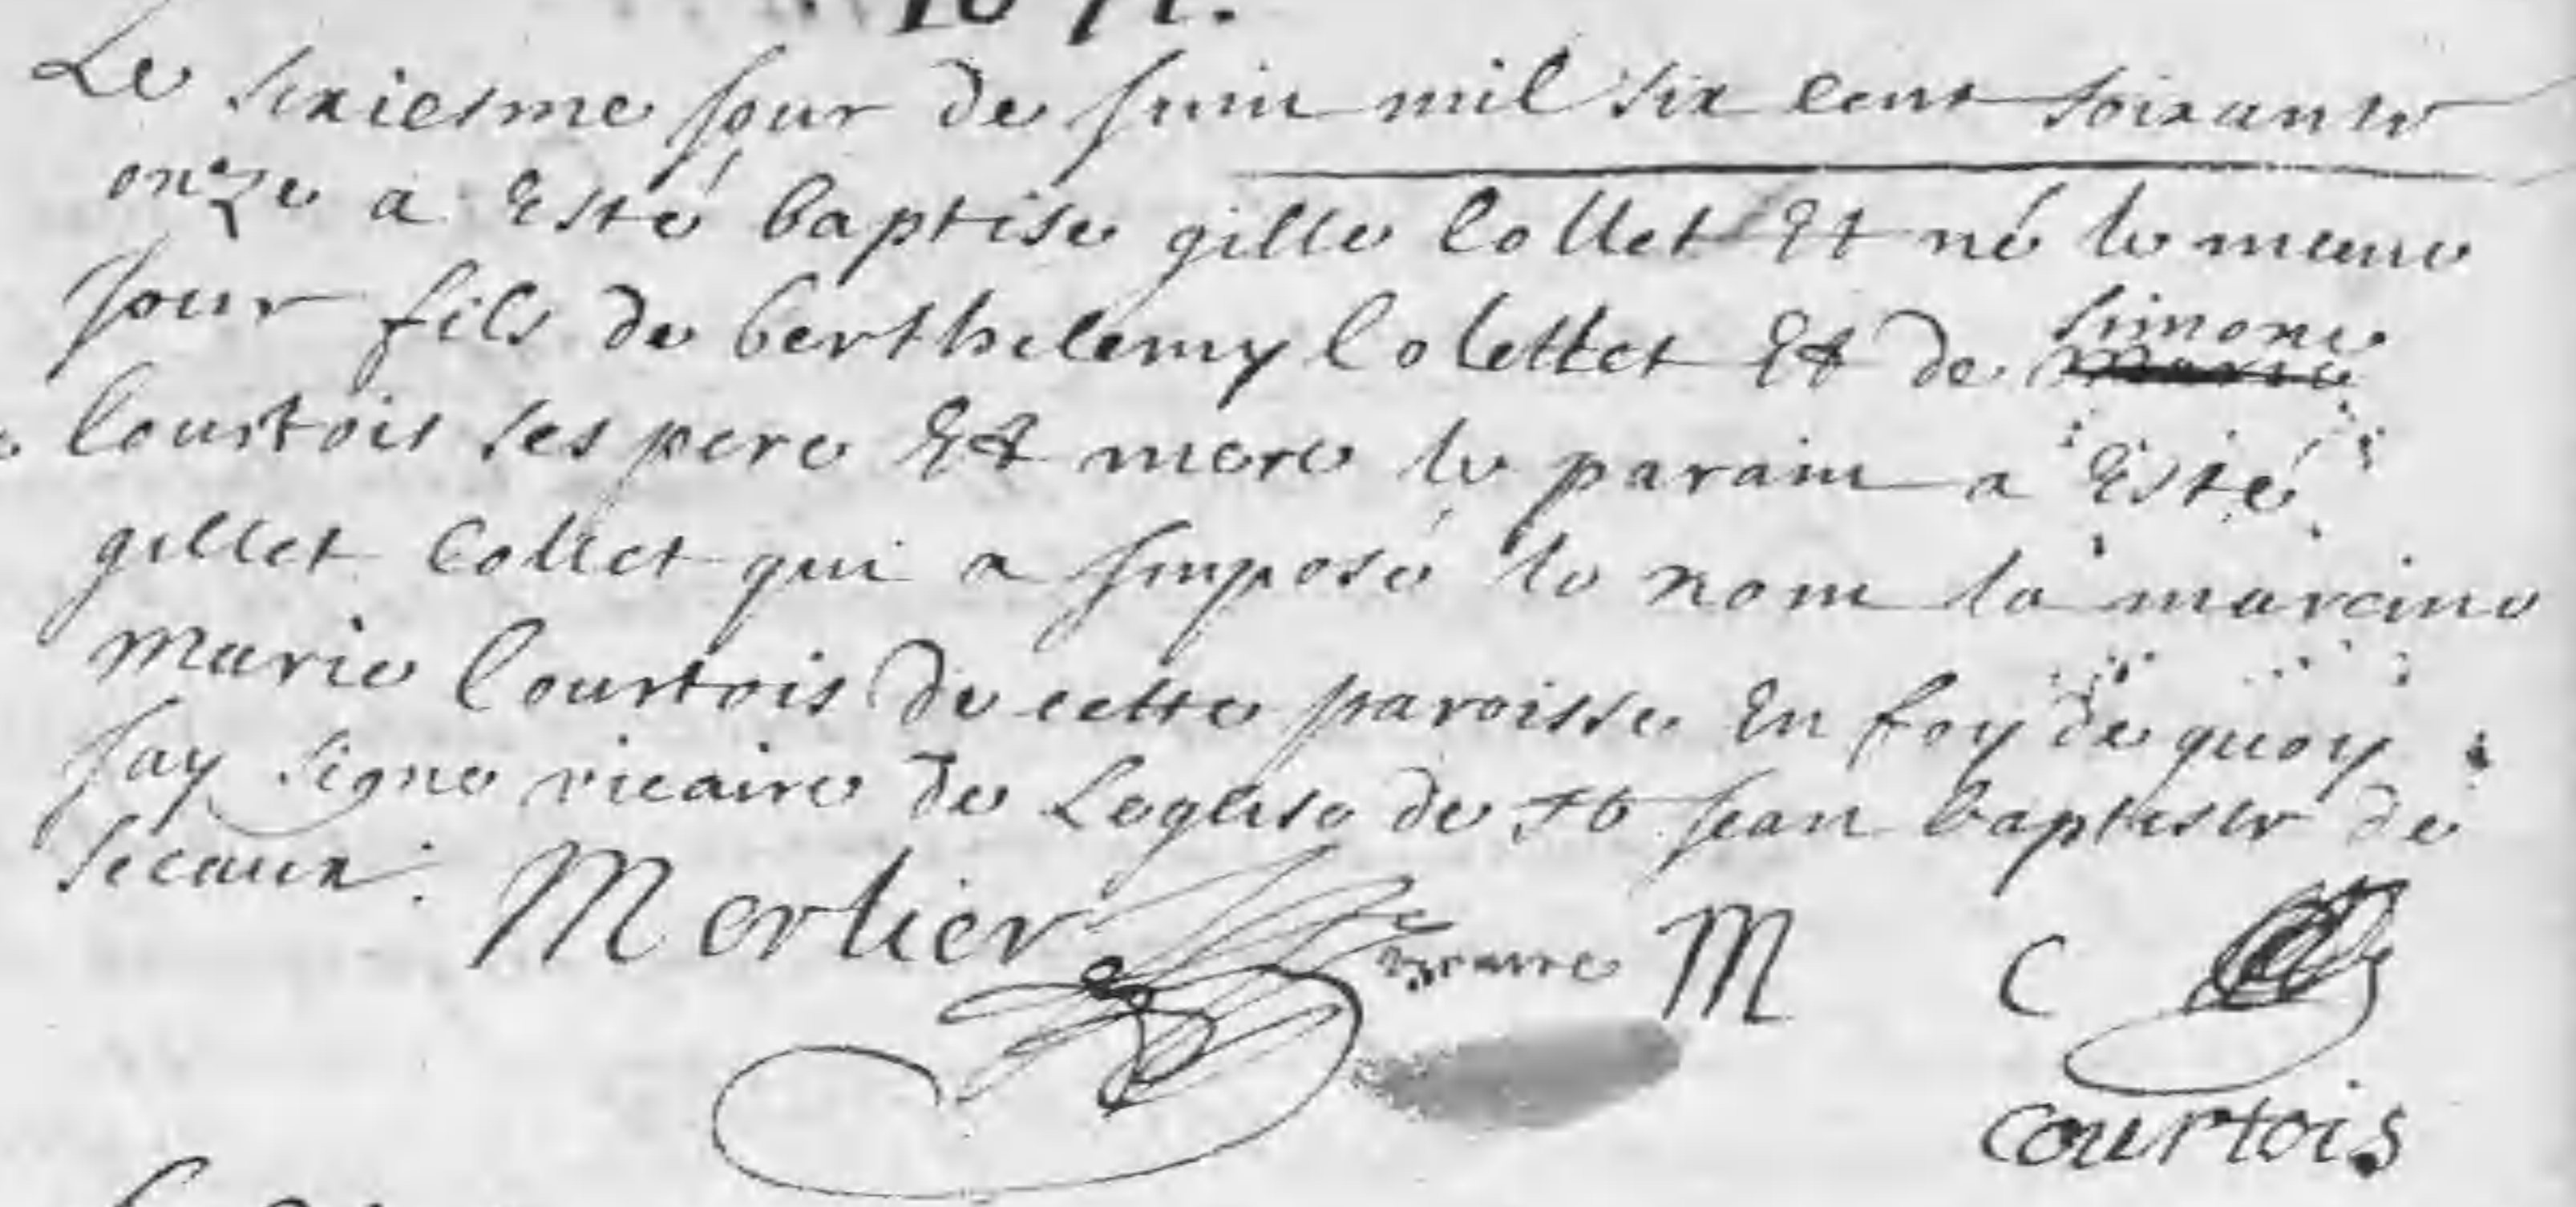 1671.
Le sixiesme jour de juin mil six cent soixante
onze a esté baptise gille Collet Et né le meme
jour fils de berthelemy Colettet Et de simone
Courtois ses pere Et mere le parain a Esté
gillet Collet qui a jmposé le nom la mareine
Marie Courtois de cette paroisse En foy de quoy
jay signe vicaire de Leglise de st jean baptiste de
secaux.
Mortier vicaire M C
courtois